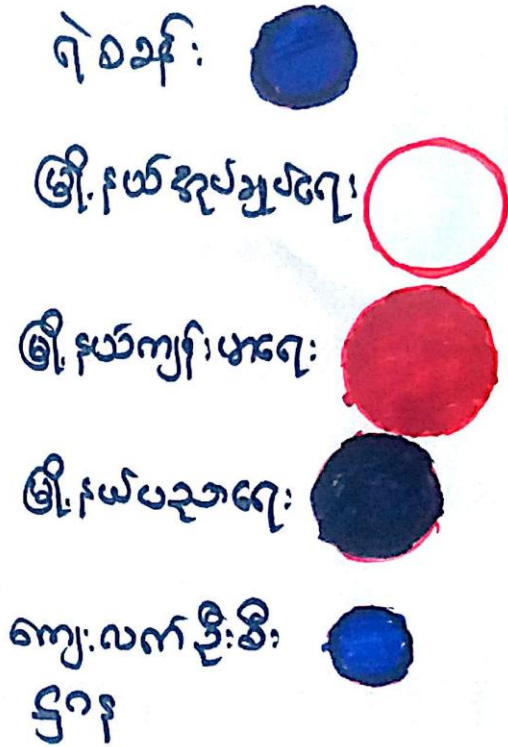 ရဲစခန်း
မြို့နယ်အုပ်ချုပ်ရေး
မြို့နယ်ကျန်းမာရေး
မြို့နယ်ပညာရေး
ကျေးလက်ဦးစီး
ဌာန